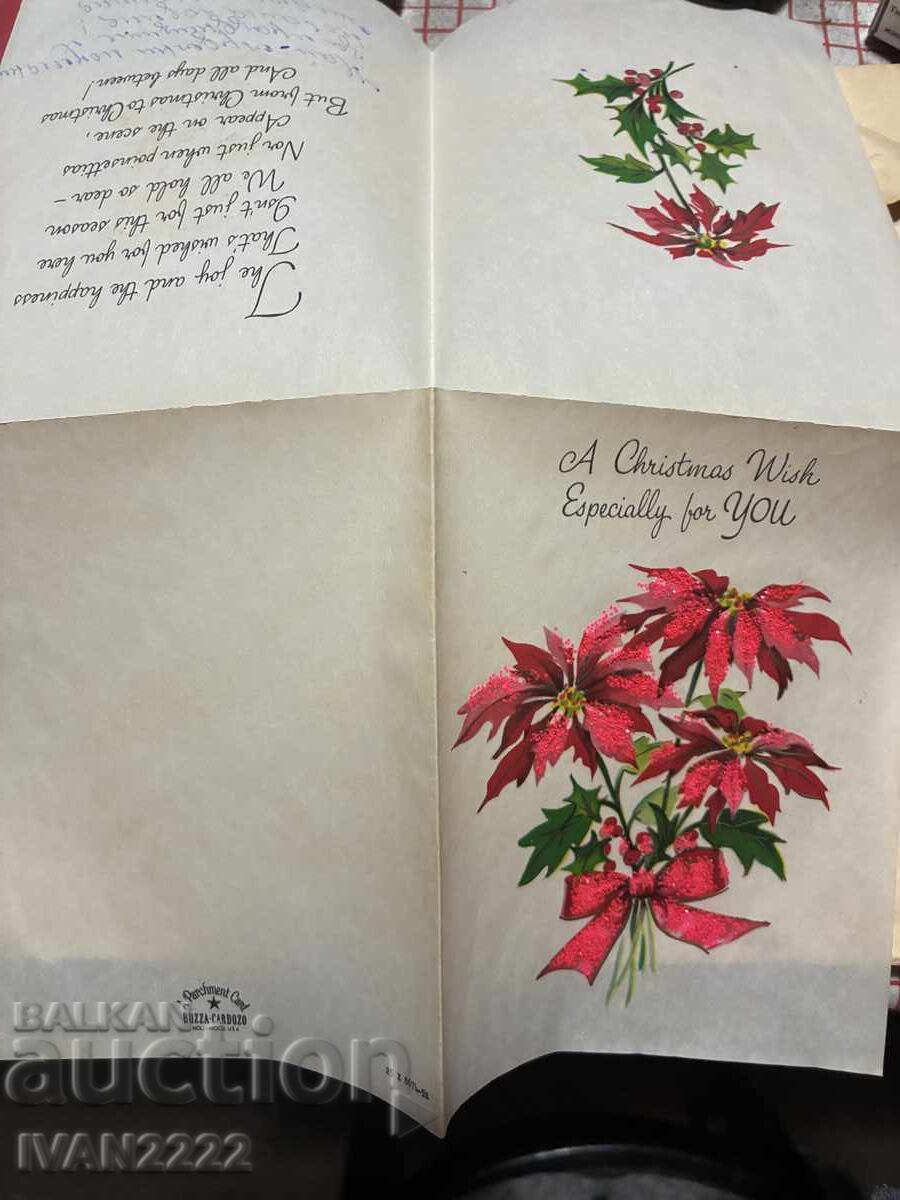 A Christmas Wish
Especially for YOU
The joy and the happiness
That's wished for you here
Isn't just for this season
We all hold so dear—
Nor just when poinsettias
Appear on the scene,
But from Christmas to Christmas
And all days between!
A Parchment Card
BUZZA-CARDOZO
HOLLYWOOD, U.S.A.
BALKAN
auction
IVAN2222